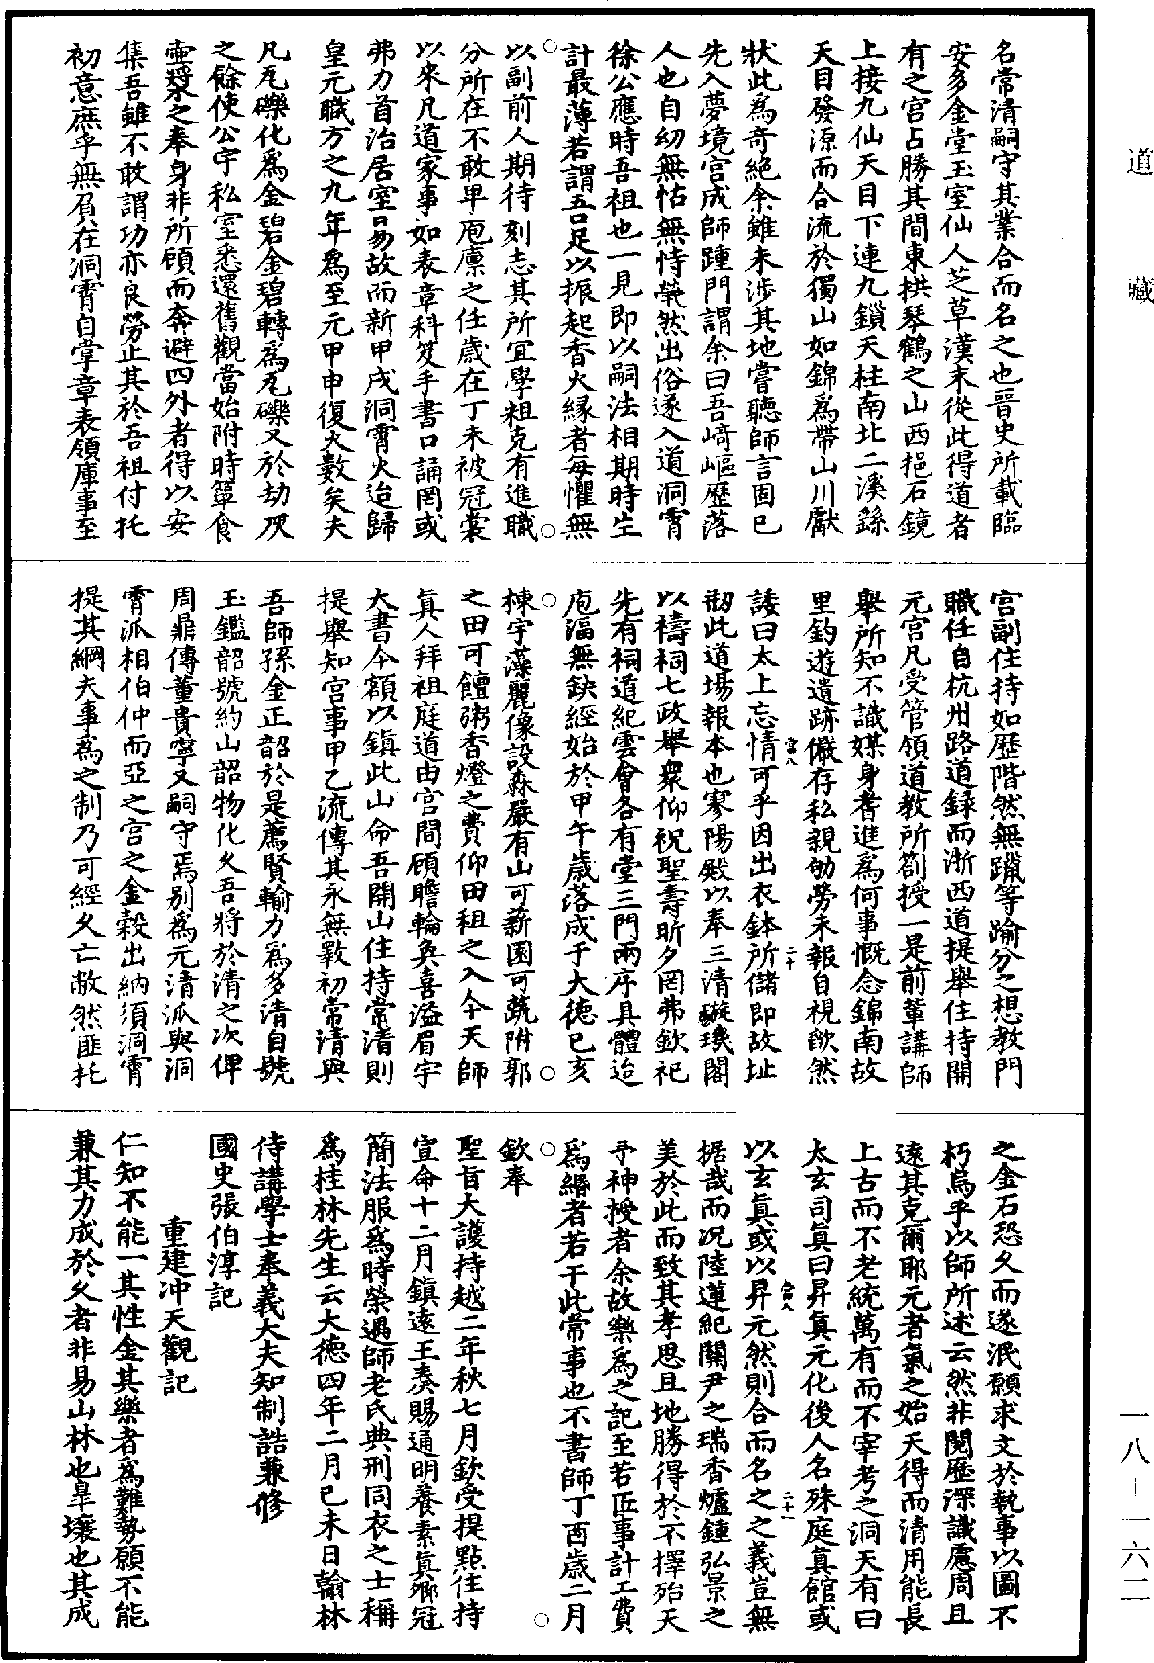 道藏
名常清嗣守其業合而名之也晉史所載臨
安多金堂玉室仙人芝草漢末從此得道者
有之宮占勝其間東拱琴鶴之山西挹石鏡
上接九仙天目下連九鎖天柱南北二溪繇
天目發源而合流於獨山如錦為帶山川獻
狀此為奇絕余雖未涉其地嘗聽師言固已
先入夢境宮成師踵門謂余曰吾崎嶇歷落
人也自幼無怙無恃煢然出俗遂入道洞霄
徐公應時吾祖也一見即以嗣法相期時生
計最薄若謂吾足以振起香火緣者每懼無
以副前人期待刻志其所宜學粗克有進職
分所在不敢卑庖廩之任歲在丁未被冠裳
以來凡道家事如表章科笈手書口誦罔或
弗力首治居室易故而新甲戌洞霄火迨歸
皇元職方之九年為至元甲申復火數矣夫
凡瓦礫化為金碧金碧轉為瓦礫又於劫灰
之餘使公宇私室悉還舊觀當始附時簞食
壺漿之奉身非所顧而奔避四外者得以安
集吾雖不敢謂功亦良勞止其於吾祖付托
初意庶乎無負在洞霄自掌章表領庫事至
宮副住持如歷階然無躐等踰分之想教門
職任自杭州路道錄而浙西道提舉住持開
元宮凡受管領道教所劄授一是前輩講師
舉所知不識媒身者進為何事慨念錦南故
里釣遊遺跡儼存私親劬勞未報自視歉然
諉曰太上忘情可乎因出衣鉢所儲即故址
刱此道場報本也寥陽殿以奉三清璇璣閣
以禱祠七政舉衆仰祝聖壽昕夕罔弗欽祀
先有祠道紀雲會各有堂三門兩序具體迨
庖湢無缺經始於甲午歲落成于大德己亥
棟宇藻麗像設森嚴有山可薪園可蔬附郭
之田可饘粥香燈之費仰田租之入今天師
真人拜祖庭道由宮間顧瞻輪奐喜溢眉宇
大書今額以鎮此山命吾開山住持常清則
提舉知宮事甲乙流傳其永無斁初常清與
吾師孫金正韶於是薦賢輸力為多清自號
玉鑑韶號約山韶物化久吾將於清之次俾
周鼎傳董貴寧又嗣守焉别為元清派與洞
霄派相伯仲而亞之宮之金穀出納須洞霄
提其綱夫事為之制乃可經久亡敝然匪托
之金石恐久而遂泯願求文於執事以圖不
朽烏乎以師所述云然非閱歷深識慮周且
遠其克爾耶元者氣之始天得而清用能長
上古而不老統萬有而不宰考之洞天有曰
太玄司真曰昇真元化後人名殊庭真館或
以玄真或以昇元然則合而名之之義豈無
據哉而況陸蓮紀關尹之瑞香爐鍾弘景之
美於此而致其孝思且地勝得於不擇殆天
予神授者余故樂為之記至若匠事計工費
為緡者若干此常事也不書師丁酉歲二月
欽奉
聖旨大護持越二年秋七月欽受提點住持
宣命十二月鎮遠王奏賜通明養素真鄉冠
簡法服為時榮遇師老氏典刑同衣之士稱
為桂林先生云大德四年二月己未日翰林
侍講學士奉義大夫知制誥兼修
國史張伯淳記
重建冲天觀記
仁知不能一其性金其樂者為難勢願不能
兼其力成於久者非易山林也皐壤也其成
一八—一六二